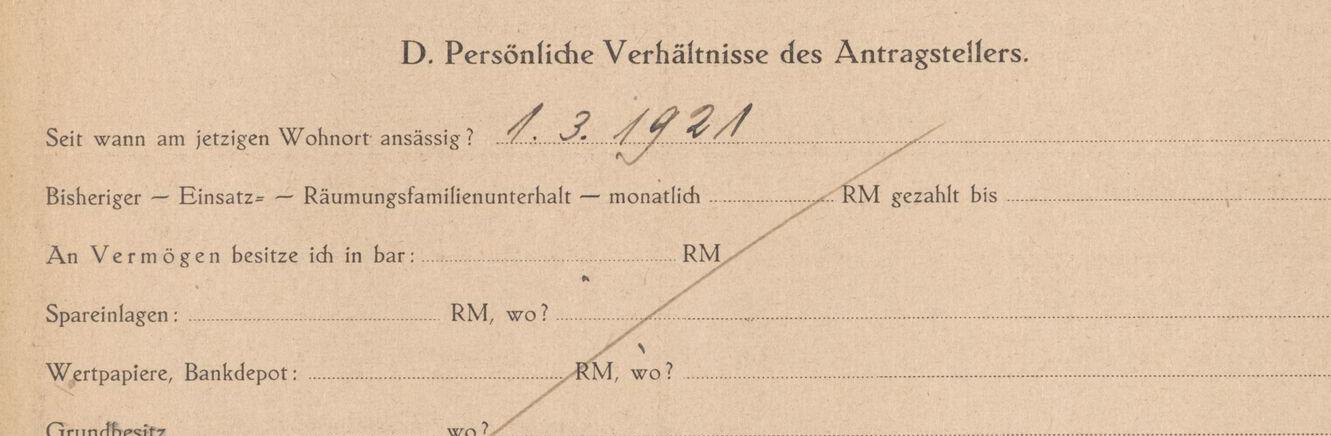 D. Persönliche Verhältnisse des Antragstellers.
Seit wann am jetzigen Wohnort ansässig? 1. 3. 1921
Bisheriger — Einsatz- — Räumungsfamilienunterhalt — monatlich RM gezahlt bis
An Vermögen besitze ich in bar: RM
Spareinlagen: RM, wo?
Wertpapiere, Bankdepot: RM, wo?
Grundbesitz wo?